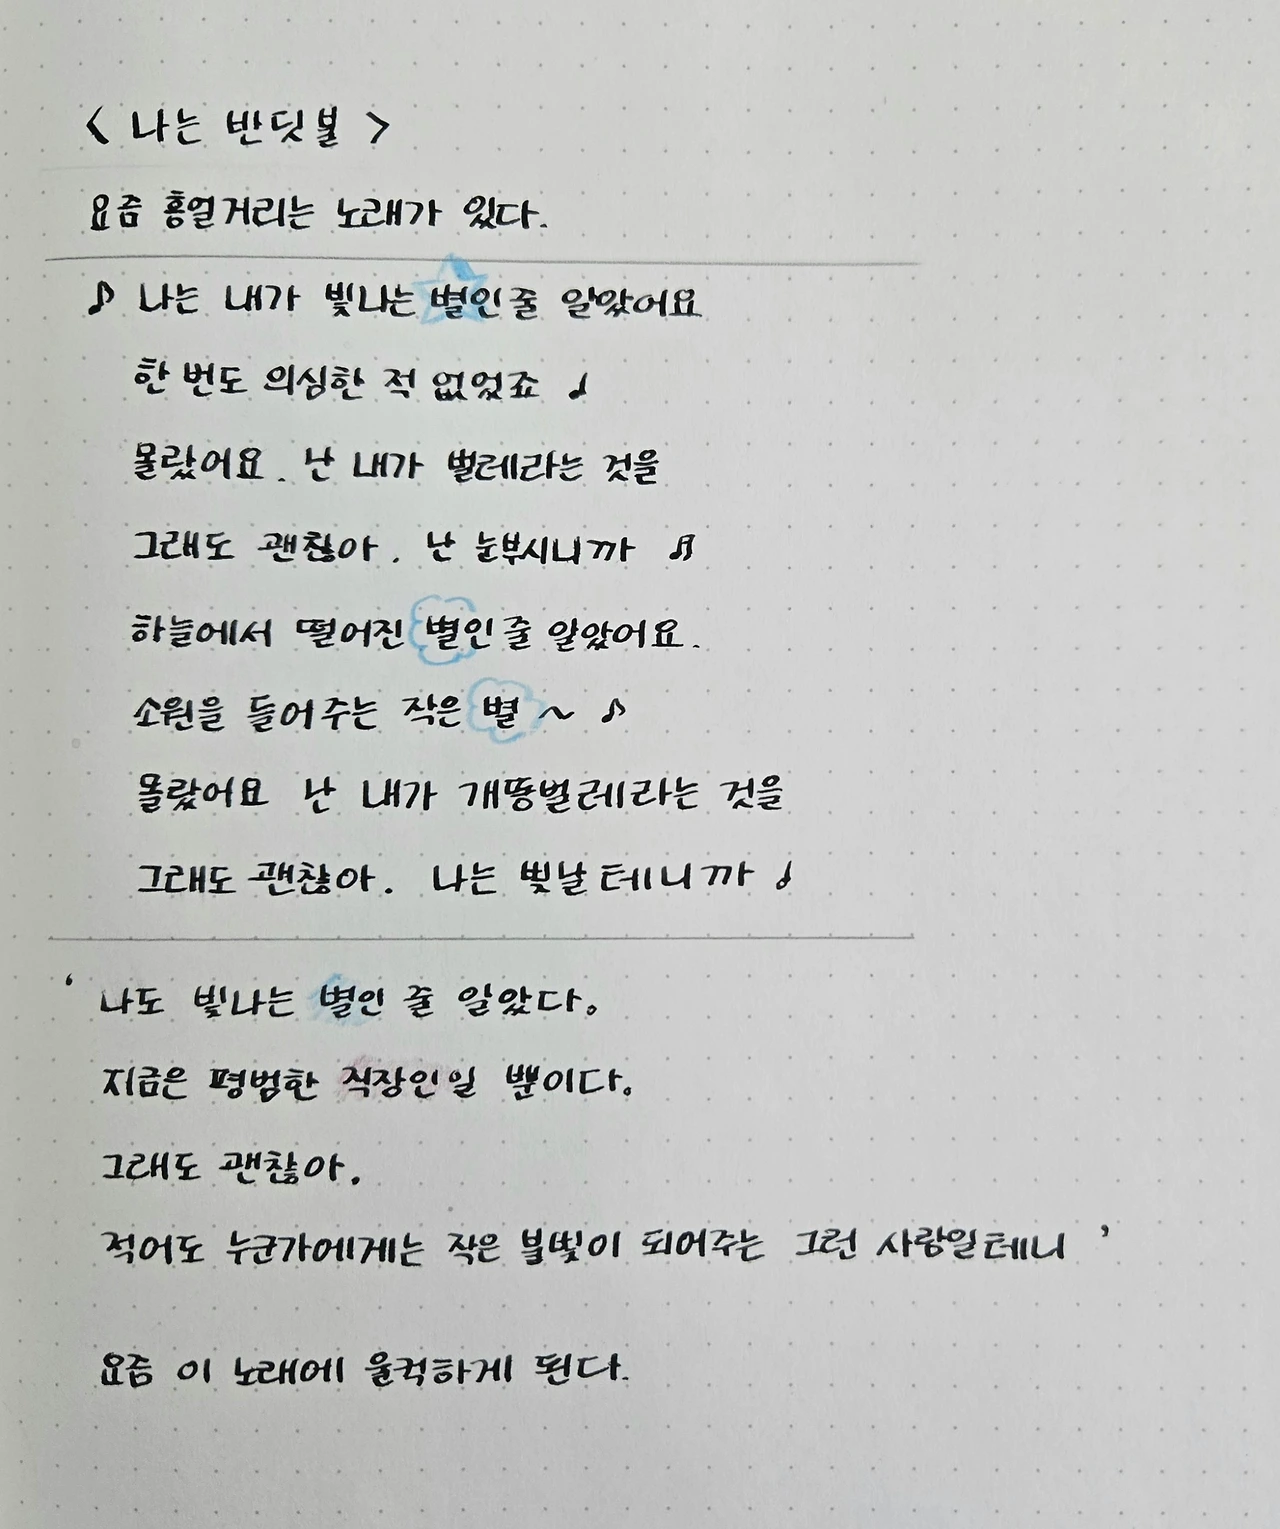 < 나는 반딧불 >
요즘 흥얼거리는 노래가 있다.
♪ 나는 내가 빛나는 별인 줄 알았어요
한 번도 의심한 적 없었죠 ♩
몰랐어요. 난 내가 벌레라는 것을
그래도 괜찮아. 난 눈부시니까 ♬
하늘에서 떨어진 별인 줄 알았어요.
소원을 들어주는 작은 별 ~ ♪
몰랐어요 난 내가 개똥벌레라는 것을
그래도 괜찮아. 나는 빛날 테니까 ♩
' 나도 빛나는 별인 줄 알았다.
지금은 평범한 직장인일 뿐이다.
그래도 괜찮아.
적어도 누군가에게는 작은 불빛이 되어주는 그런 사람일테니 '
요즘 이 노래에 울컥하게 된다.